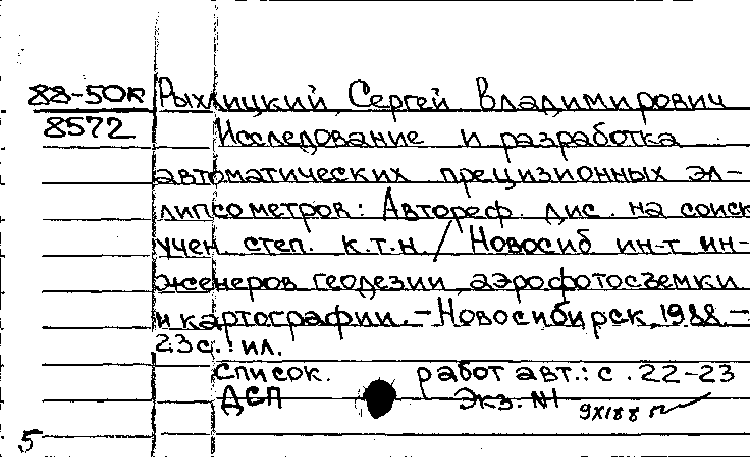 88-50к Рыхлицкий Сергей Владимирович
8572 Исследование и разработка
автоматических прецизионных эл-
липсометров: Автореф. дис. на соиск
учен. степ. к.т.н. / Новосиб ин-т ин-
женеров геодезии, аэрофотосъемки
и картографии. - Новосибирск, 1988. -
23с.: ил.
Список. работ авт.: с. 22-23
ДСП Экз. №1 9XI88
5